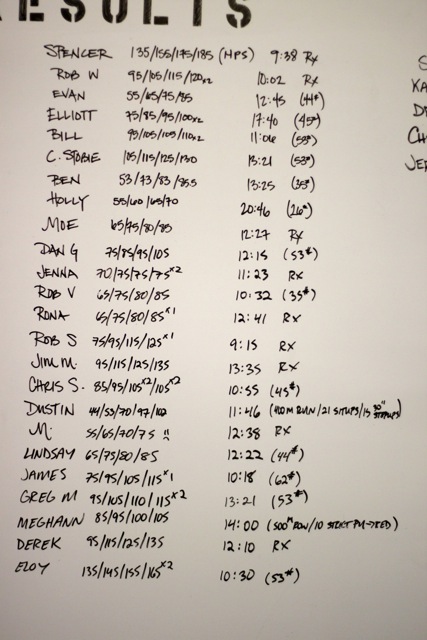 RESULTS
SPENCER 135/155/175/185 (MPS) 9:38 Rx
ROB W 95/105/115/120x2 10:02 Rx
EVAN 55/65/75/85 12:45 (44#)
ELLIOTT 75/85/95/100x2 17:40 (45#)
BILL 95/105/105/110x2 11:06 (53#)
C. STOBIE 105/115/125/130 13:21 (53#)
BEN 53/73/83/85.5 13:25 (35#)
HOLLY 55/60/65/70 20:46 (26#)
MOE 65/75/80/85 12:27 Rx
DAN G 75/85/95/105 12:15 (53#)
JENNA 70/75/75/75x2 11:23 Rx
ROB V 65/75/80/85 10:32 (35#)
RONA 65/75/80/85x1 12:41 Rx
ROB S 75/95/115/125x1 9:15 Rx
JIM M. 95/115/125/135 13:35 Rx
CHRIS S. 85/95/105x2/105x2 10:55 (45#)
DUSTIN 44/53/70/97/102 11:46 (400M RUN/21 SITUPS/15 30" STEPUPS)
M. 55/65/70/75 !! 12:38 Rx
LINDSAY 65/75/80/85 12:22 (44#)
JAMES 75/95/105/115x1 10:18 (62#)
GREG M 95/105/110/115x2 13:21 (53#)
MEGHANN 85/95/100/105 14:00 (500M ROW/10 STRICT
DEREK 95/115/125/135 12:10 Rx
ELOY 135/145/155/165x2 10:30 (53#)
S
KA
D
CH
JER